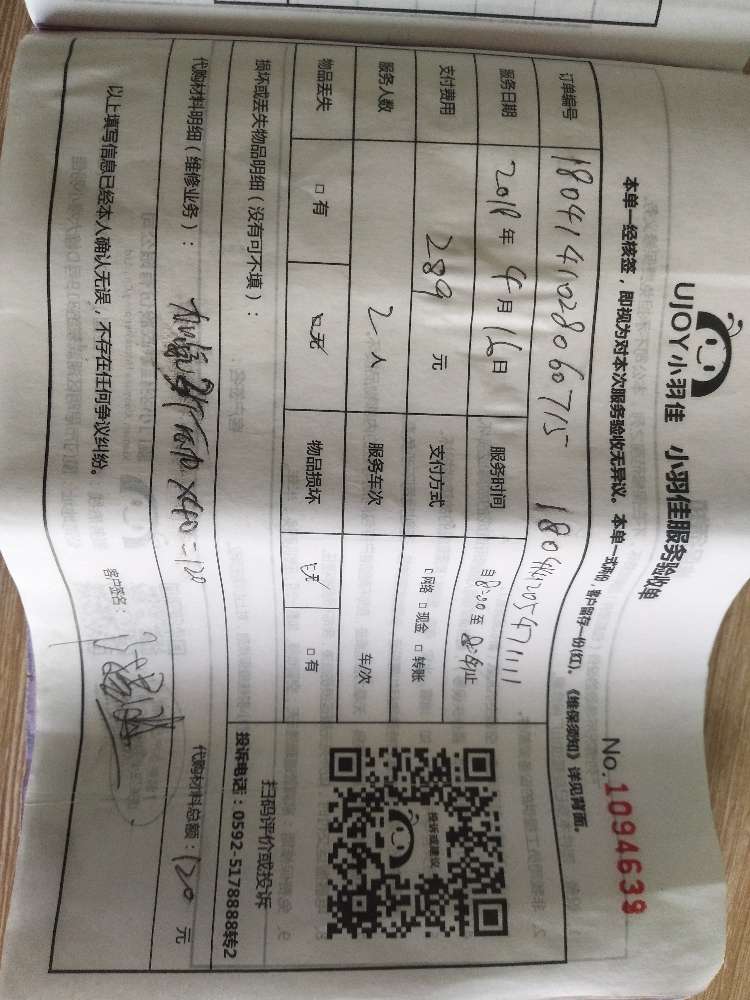 UJOY小羽佳 小羽佳服务验收单
No.1094639
本单一经核签，即视为对本次服务验收无异议。本单一式两份，客户留存一份(红)。《维保须知》详见背面。
订单编号 1804141028060715
服务日期 2018年4月16日 服务时间 自8:00至
支付费用 289元 支付方式 □网络 □现金 □转账
服务人数 2人 服务车次 车/次
物品丢失 □有 □无 物品损坏 □无 □有
损坏或丢失物品明细（没有可不填）：
投诉或建议
扫码评价或投诉
投诉电话：0592-5178888转2
代购材料明细（维修业务）： ×40=120
代购材料总额：120元
以上填写信息已经本人确认无误，不存在任何争议纠纷。
客户签名：